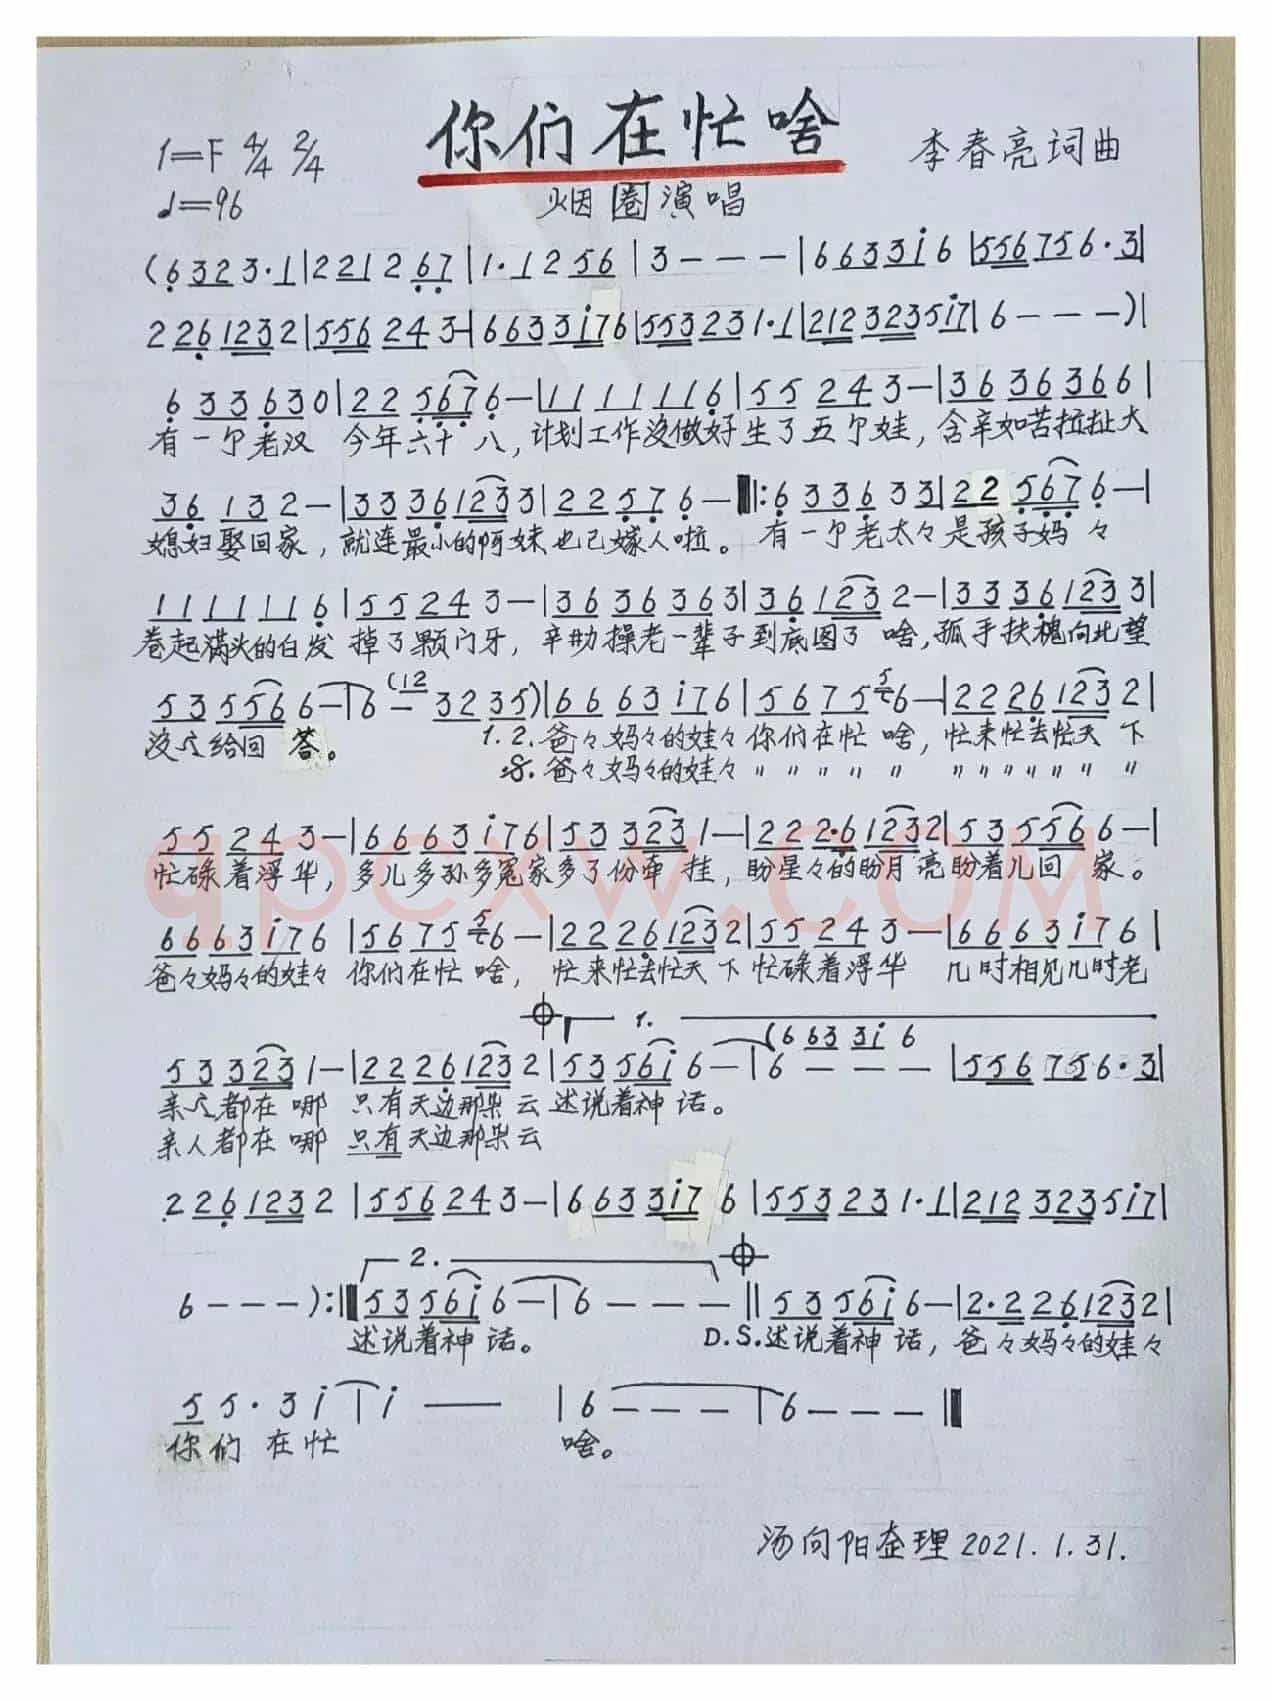 你们在忙啥
1=F 4/4 2/4
李春亮词曲
♩=96
烟圈演唱
(6 3 2 3·1|2 2 1 2 6 7|1·1 2 5 6|3 - - -|6 6 3 3 i 6|5 5 6 7 5 6·3|
2 2 6 1 2 3 2|5 5 6 2 4 3-|6 6 3 3 i 7 6|5 5 3 2 3 1·1|2 1 2 3 2 3 5 i 7|6 - - -)|
6 3 3 6 3 0|2 2 5 6 7 6-|1 1 1 1 1 1 6|5 5 2 4 3-|3 6 3 6 3 6 6|
有一个老汉 今年六十八，计划工作没做好生了五个娃，含辛如苦拉扯大
3 6 1 3 2-|3 3 3 6 1 2 3 3|2 2 5 7 6-‖:6 3 3 6 3 3|2 2 5 6 7 6-|
媳妇娶回家，就连最小的阿妹也已嫁人啦。有一个老太々是孩子妈々
1 1 1 1 1 1 6|5 5 2 4 3-|3 6 3 6 3 6 3|3 6 1 2 3 2-|3 3 3 6 1 2 3 3|
卷起满头的白发 掉了颗门牙，辛劳操老一辈子到底图了啥，孤手扶槐向北望
5 3 5 5 6 6-|6 - (1 2 3 2 3 5)|6 6 6 3 i 7 6|5 6 7 5 5 6-|2 2 2 6 1 2 3 2|
没人给回答。 1.2.爸々妈々的娃々你们在忙啥，忙来忙去忙天下
𝄋.爸々妈々的娃々 〃〃〃〃〃 〃〃〃〃〃〃〃
5 5 2 4 3-|6 6 6 3 i 7 6|5 3 3 2 3 1-|2 2 2·6 1 2 3 2|5 3 5 5 6 6-|
忙碌着浮华，多儿多孙多冤家多了份牵挂，盼星々的盼月亮盼着儿回家。
6 6 6 3 i 7 6|5 6 7 5 5 6-|2 2 2 6 1 2 3 2|5 5 2 4 3-|6 6 6 3 i 7 6|
爸々妈々的娃々 你们在忙啥，忙来忙去忙天下忙碌着浮华 几时相见几时老
1.
(6 6 3 3 i 6
5 3 3 2 3 1-|2 2 2 6 1 2 3 2|5 3 5 6 i 6-|6 - - -|5 5 6 7 5 6·3|
亲人都在哪 只有天边那朵云述说着神话。
亲人都在哪 只有天边那朵云
2 2 6 1 2 3 2|5 5 6 2 4 3-|6 6 3 3 i 7 6|5 5 3 2 3 1·1|2 1 2 3 2 3 5 i 7|
2.
6 - - -):‖5 3 5 6 i 6-|6 - - -‖5 3 5 6 i 6-|2·2 2 6 1 2 3 2|
述说着神话。 D.S.述说着神话，爸々妈々的娃々
5 5·3 i|i — |6 - - -|6 - - -‖
你们在忙 啥。
汤向阳整理2021.1.31.
qpcxw.com